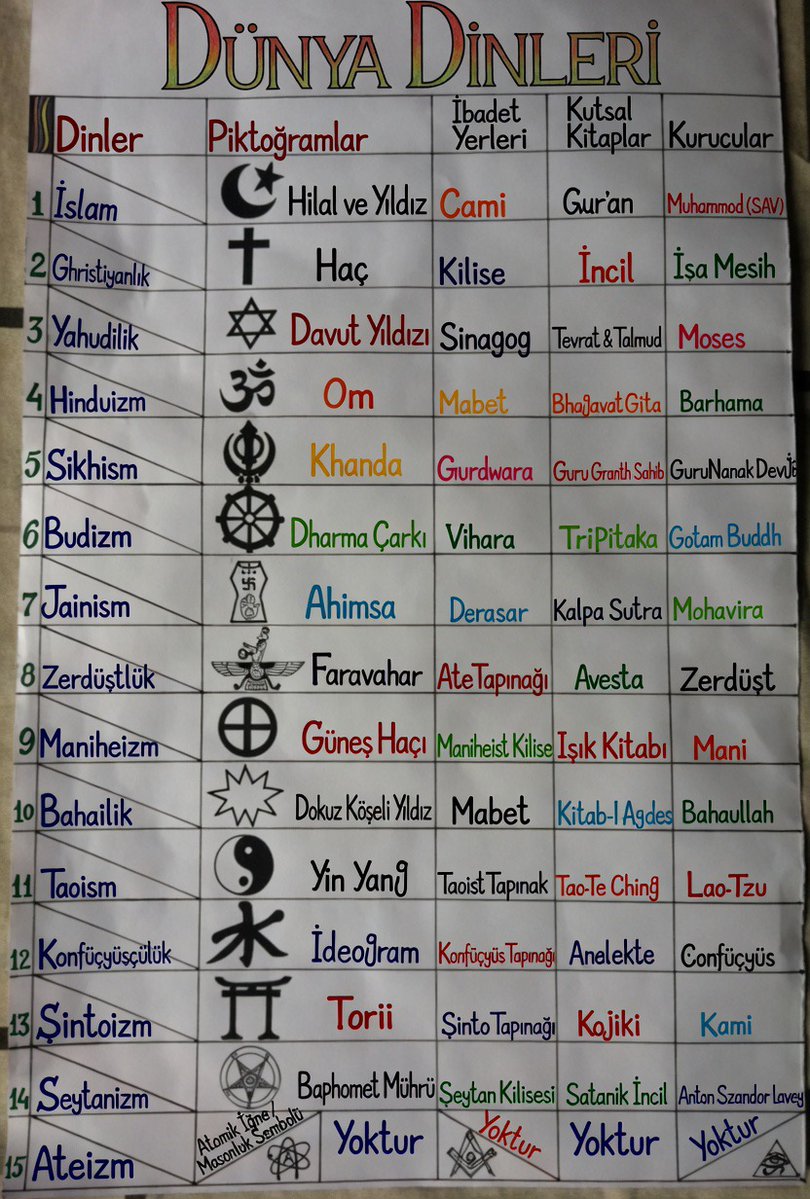 DÜNYA DİNLERİ
Dinler Piktoğramlar İbadet Yerleri Kutsal Kitaplar Kurucular
1 İslam Hilal ve Yıldız Cami Gur'an Muhammod (SAV)
2 Ghristiyanlık Haç Kilise İncil İşa Mesih
3 Yahudilik Davut Yıldızı Sinagog Tevrat & Talmud Moses
4 Hinduizm Om Mabet Bhagavat Gita Barhama
5 Sikhism Khanda Gurdwara Guru Granth Sahib Guru Nanak Dev Jİ
6 Budizm Dharma Çarkı Vihara TriPitaka Gotam Buddh
7 Jainism Ahimsa Derasar Kalpa Sutra Mohavira
8 Zerdüştlük Faravahar Ate Tapınağı Avesta Zerdüşt
9 Maniheizm Güneş Haçı Maniheist Kilise Işık Kitabı Mani
10 Bahailik Dokuz Köşeli Yıldız Mabet Kitab-I Agdes Bahaullah
11 Taoism Yin Yang Taoist Tapınak Tao-Te Ching Lao-Tzu
12 Konfüçyüsçülük İdeogram Konfüçyüs Tapınağı Anelekte Confüçyüs
13 Şintoizm Torii Şinto Tapınağı Kojiki Kami
14 Seytanizm Baphomet Mührü Şeytan Kilisesi Satanik İncil Anton Szandor Lavey
15 Ateizm Atomik İğne / Masonluk Sembolü Yoktur Yoktur Yoktur Yoktur